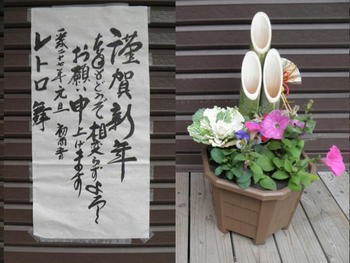 謹賀新年
本年もどうぞ相変らずよろしく
お願い申し上げます
平成二十七年元旦
レトロ舞